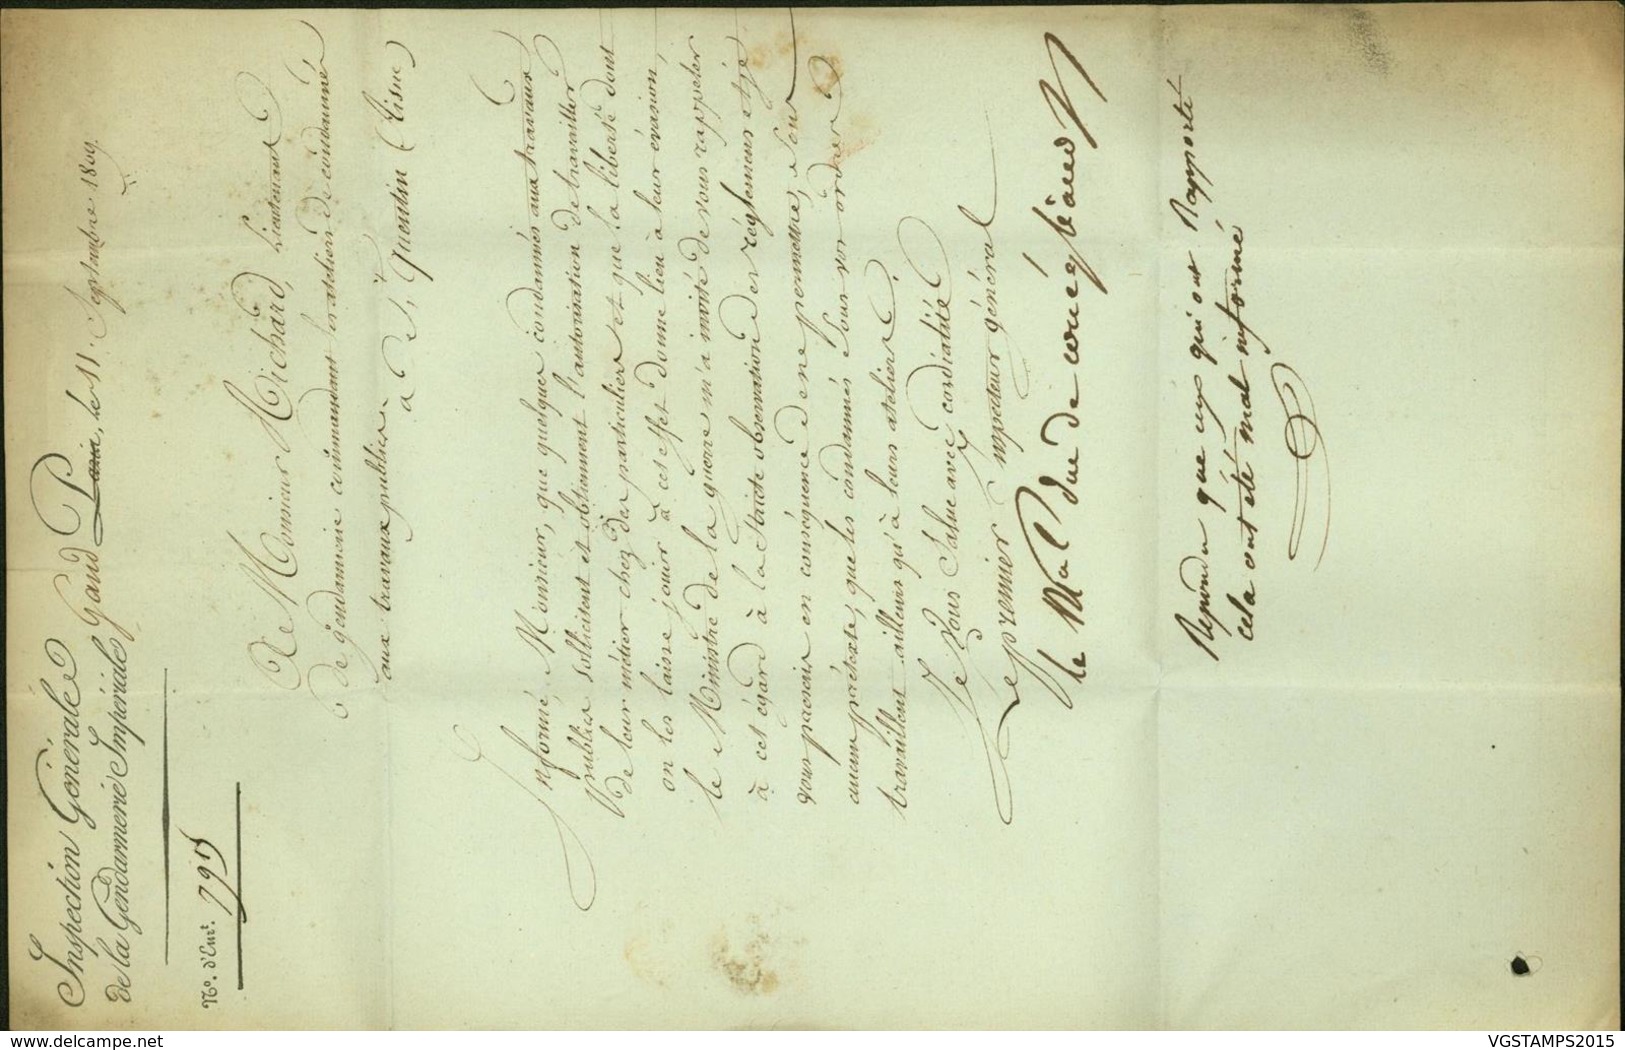 Inspection Générale
de la Gendarmerie Impériale
Gand Paris, le 11. Septembre 1809.
No. d'Enrt. 7915
A Monsieur Michard, Lieutenant
de gendarmerie commandant les ateliers de condamnés
aux travaux publics
à St. Quentin (Aisne)
Informé, Monsieur, que quelques condamnés aux travaux
publics sollicitent et obtiennent l'autorisation de travailler
de leur métier chez des particuliers et que la liberté dont
on les laisse jouir à cet effet donne lieu à leur évasion,
le Ministre de la guerre m'a invité de vous rappeler
à cet égard à la stricte observation des réglemens et je
vous prescris en conséquence de ne permettre, sous
aucun prétexte, que les condamnés sous vos ordres
travaillent ailleurs qu'à leurs ateliers.
Je Vous Salue avec cordialité
Le premier inspecteur général
le Mal duc de conégliano
Repondu que ceux qui ont Rapporté
cela ont été mal informé
VGSTAMPS2015
delcampe.net